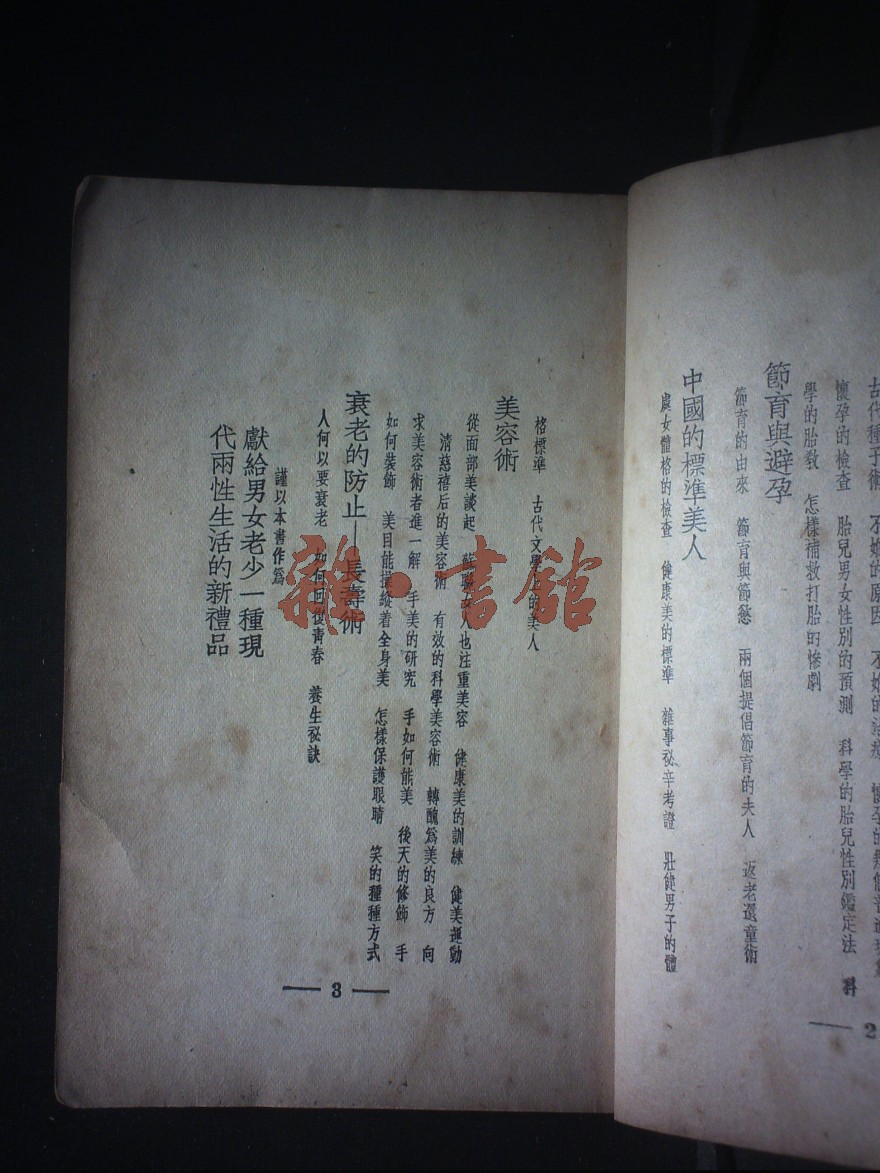 古代種子術　不姙的原因　不姙的治療　懷孕的幾個普通現象
懷孕的檢查　胎兒男女性別的預測　科學的胎兒性別鑑定法　科
學的胎教　怎樣補救打胎的慘劇
節育與避孕
節育的由來　節育與節慾　兩個提倡節育的夫人　返老還童術
中國的標準美人
處女體格的檢查　健康美的標準　雜事祕辛考證　壯健男子的體
2
格標準　古代文學　的美人
美容術
從面部美談起　女人也注重美容　健康美的訓練　健美運動
清慈禧后的美容術　有效的科學美容術　轉醜爲美的良方　向
求美容術者進一解　手美的研究　手如何能美　後天的修飾　手
如何裝飾　美目能操縱着全身美　怎樣保護眼睛　笑的種種方式
衰老的防止—長壽術
人何以要衰老　如何回復青春　養生祕訣
謹以本書作爲
獻給男女老少一種現
代兩性生活的新禮品
3
雜·書館